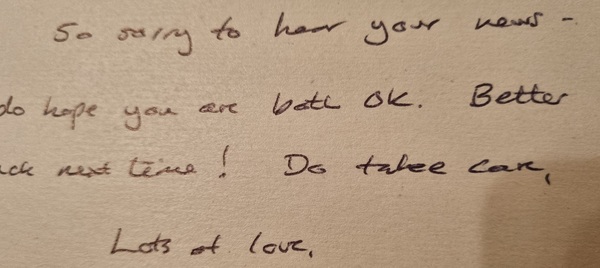 So sorry to hear your news -
do hope you are both OK. Better
ck next time! Do take care,
Lots of love,